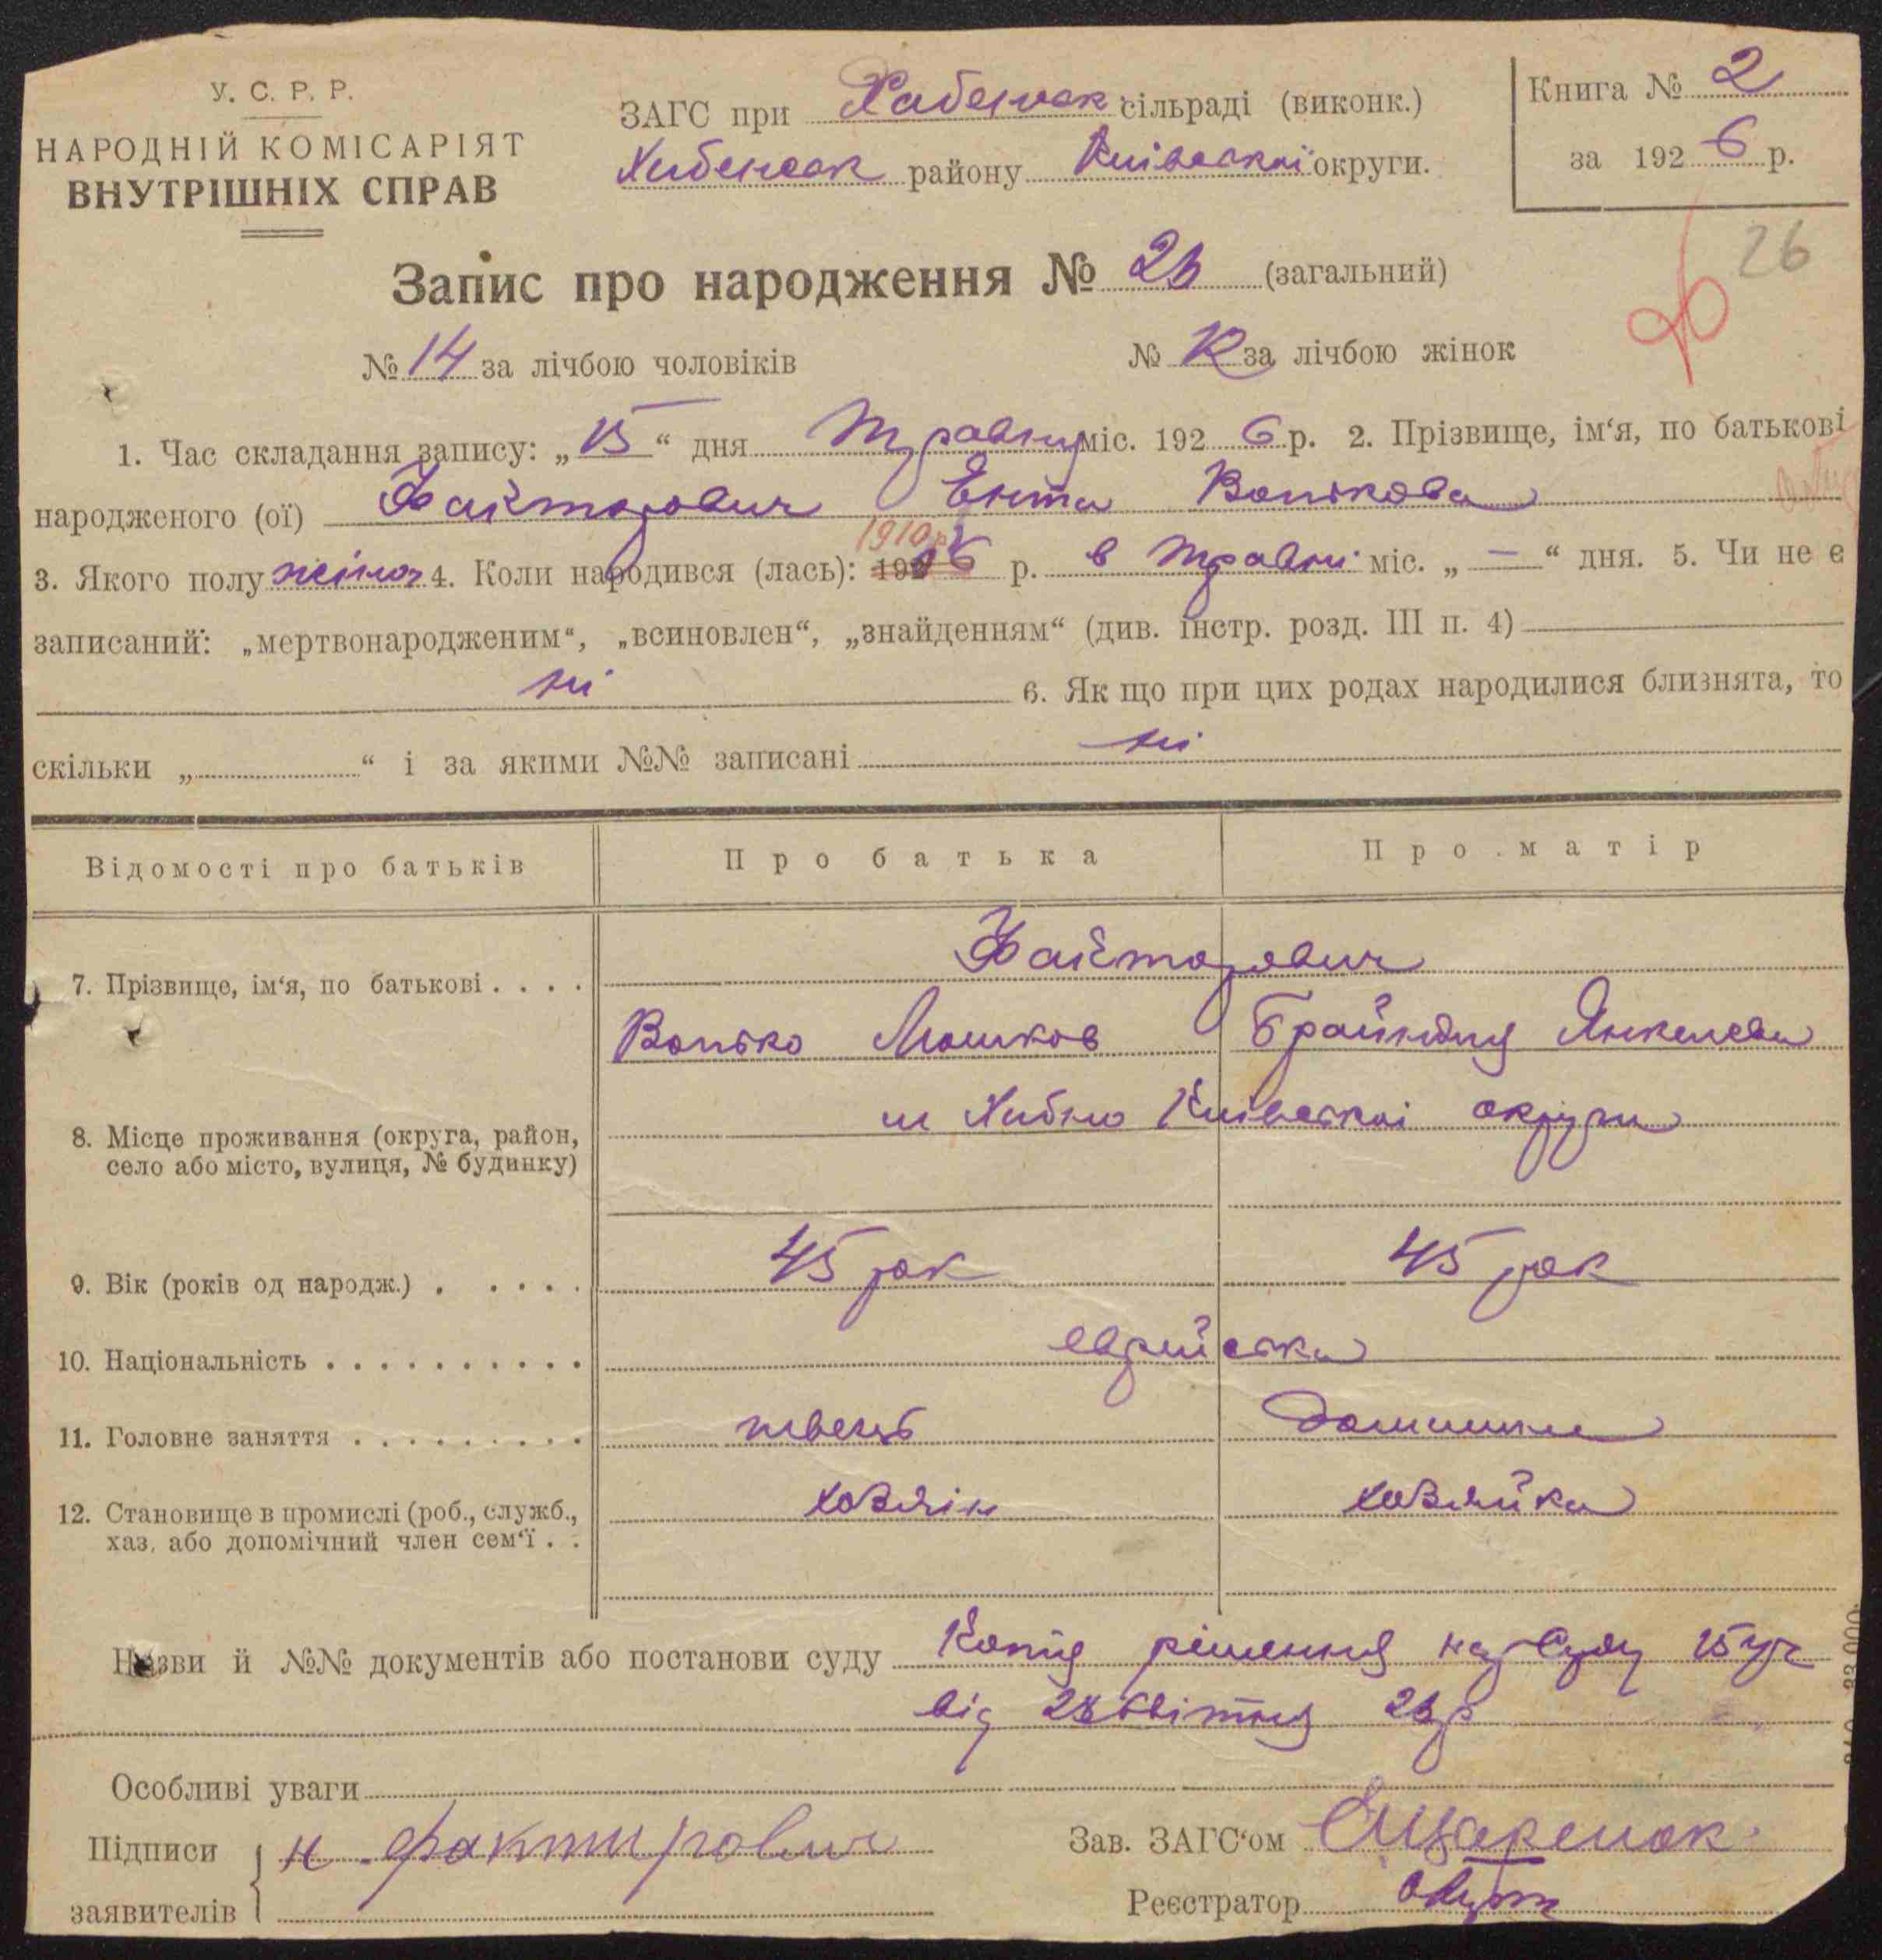 У. С. Р. Р.
НАРОДНІЙ КОМІСАРІЯТ
ВНУТРІШНІХ СПРАВ
ЗАГС при Хабенськ сільраді (виконк.)
Хабенськ району Київської округи.
Книга № 2
за 1926 р.
Запис про народження № 26 (загальний)
26
№ 14 за лічбою чоловіків № 12 за лічбою жінок
1. Час складання запису: „15“ дня Травня міс. 1926 р. 2. Прізвище, ім‘я, по батькові
народженого (ої) Файторович Ента Волькова
1910 р
3. Якого полу жіноч 4. Коли народився (лась): 1926 р. в травні міс. „—“ дня. 5. Чи не є
записаний: „мертвонародженим“, „всиновлен“, „знайденням“ (див. інстр. розд. III п. 4)
ні 6. Як що при цих родах народилися близнята, то
скільки „ “ і за якими №№ записані ні
Відомості про батьків Про батька Про матір
Файторович
7. Прізвище, ім‘я, по батькові . . . .
Волько Мошков Брайндля Янкелева
м Хабно Київскої округи
8. Місце проживання (округа, район,
село або місто, вулиця, № будинку)
9. Вік (років од народж.) . . . . . 45 рок 45 рок
10. Національність . . . . . . . . . . еврейська
11. Головне заняття . . . . . . . . . швець домашнє
12. Становище в промислі (роб., служб.,
хаз. або допомічний член сем‘ї . . хозяін хозяйка
Назви й №№ документів або постанови суду Копія рішення нар Суду 15 уч
від 28 Квітня 26 р
Особливі уваги
Підписи
заявителів
Н. Фактирович
Зав. ЗАГС‘ом
Реєстратор